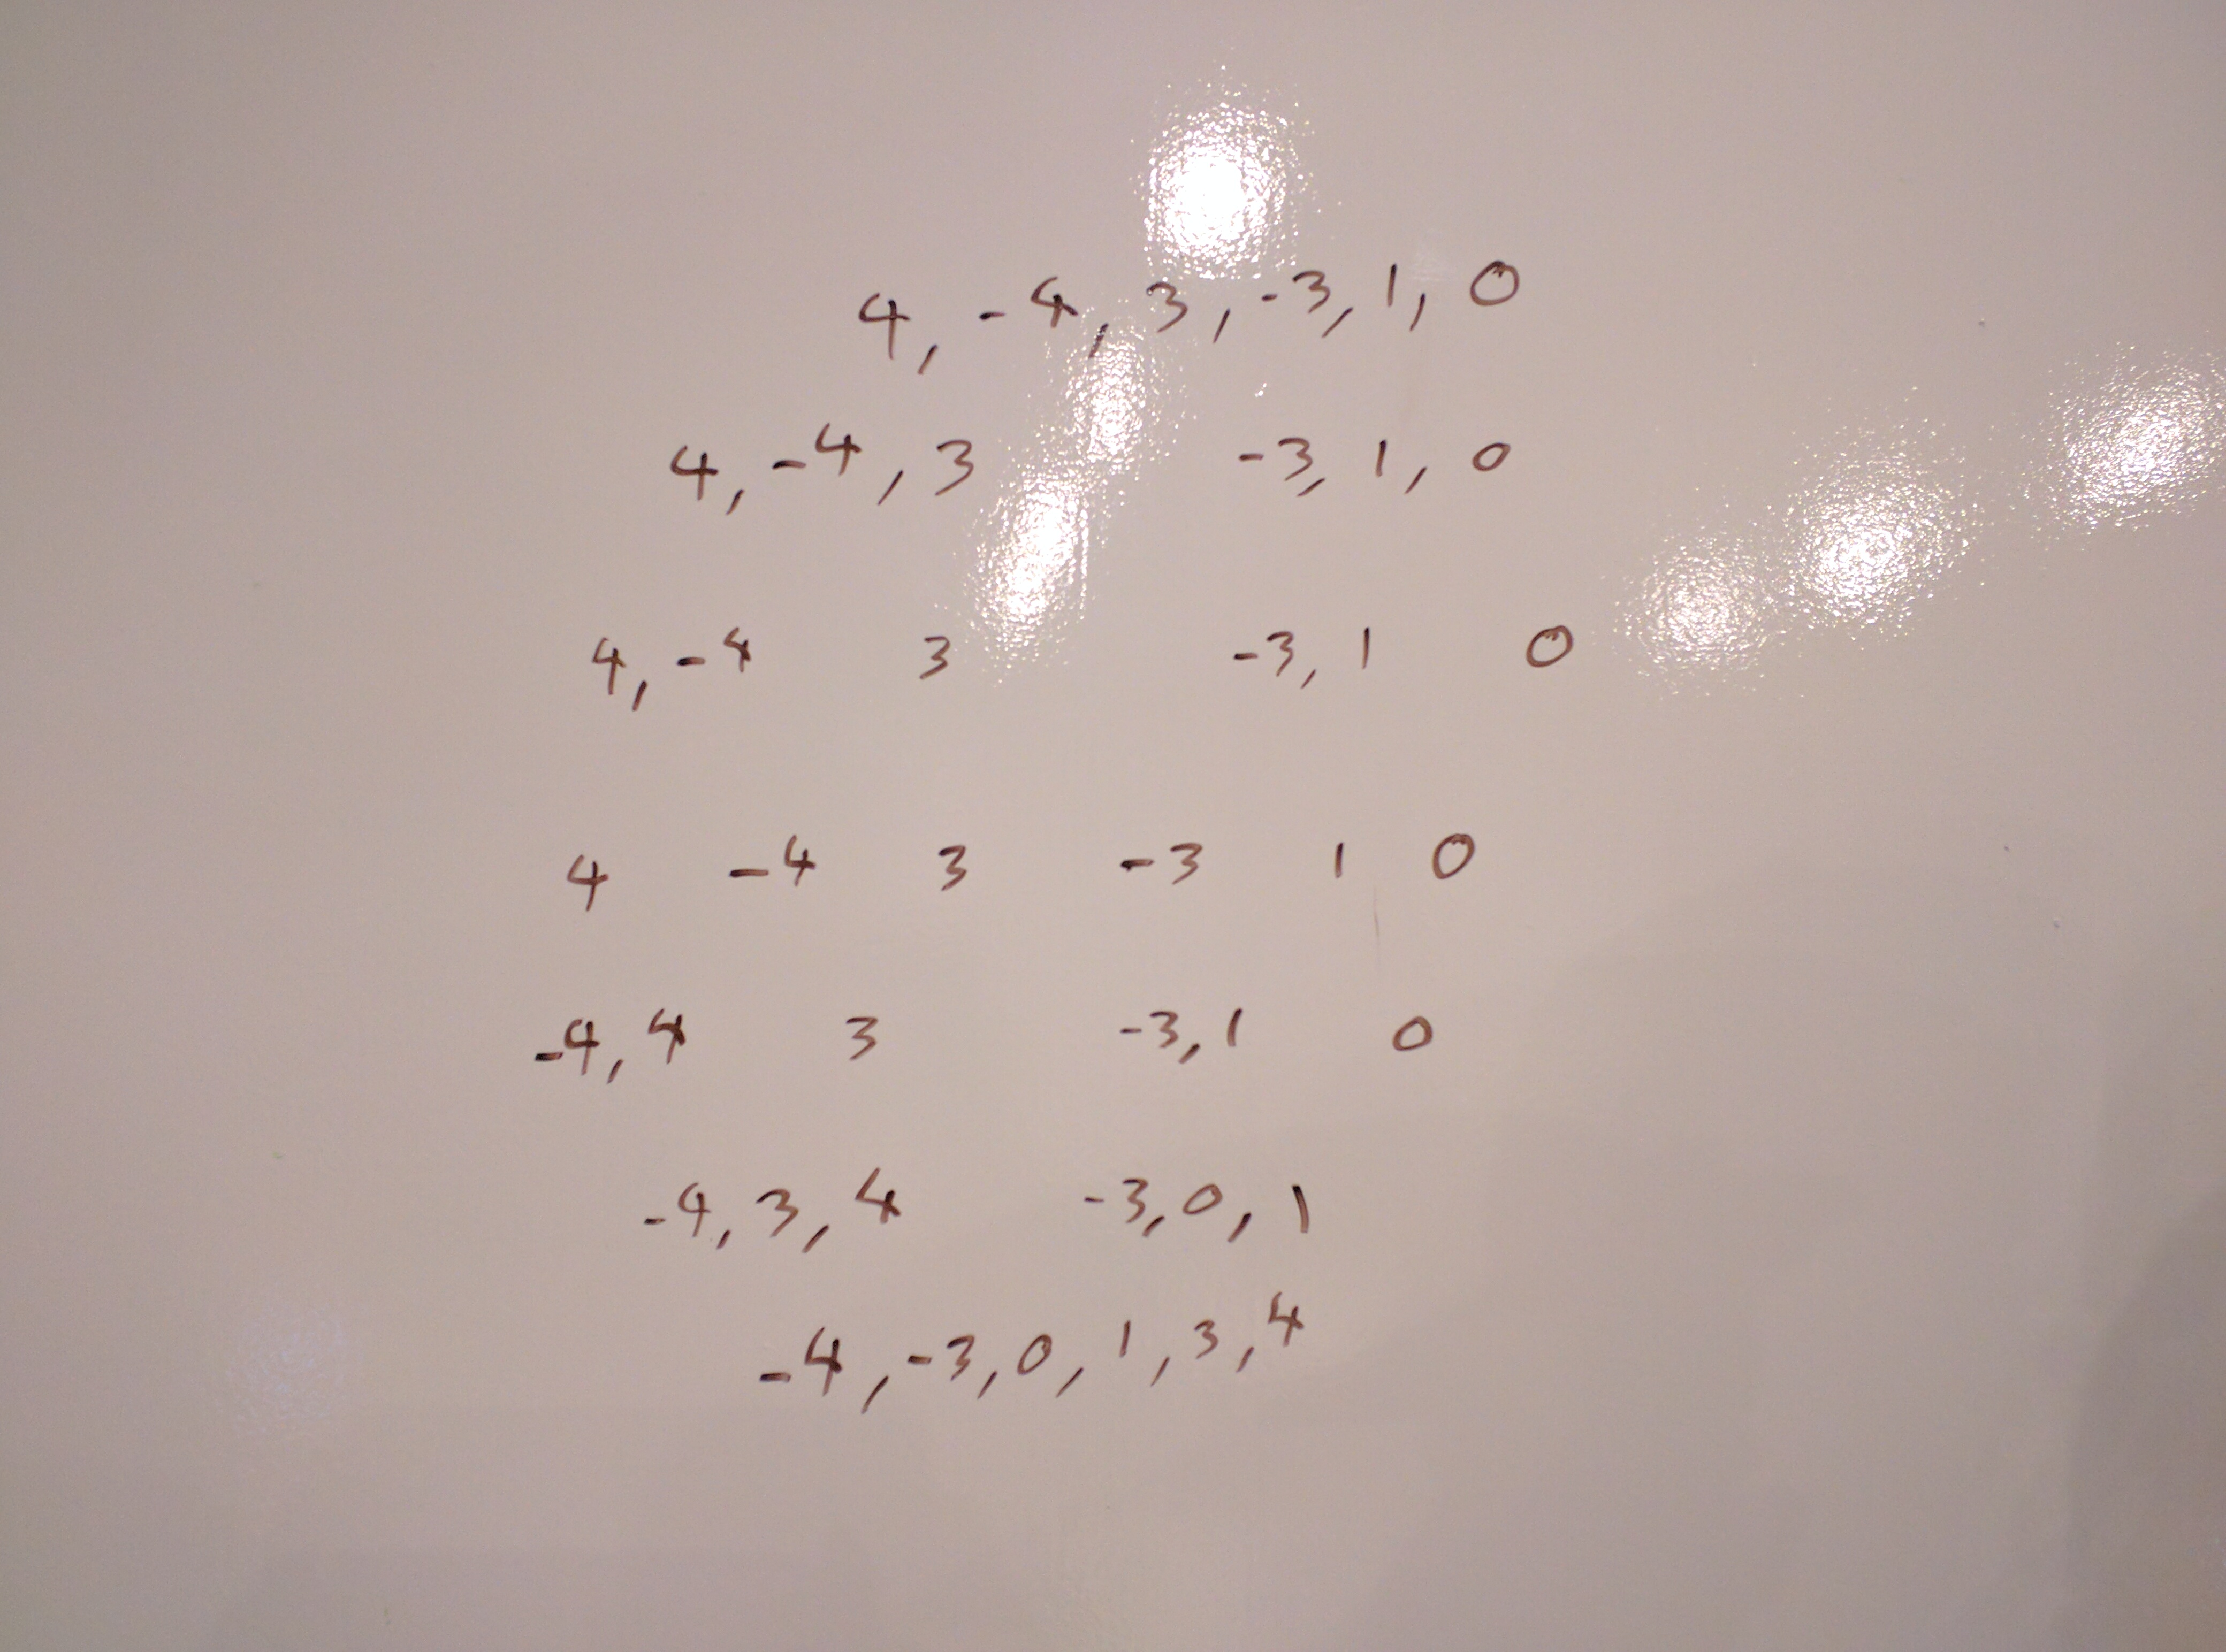 4, -4, 3, -3, 1, 0
4, -4, 3 -3, 1, 0
4, -4 3 -3, 1 0
4 -4 3 -3 1 0
-4, 4 3 -3, 1 0
-4, 3, 4 -3, 0, 1
-4, -3, 0, 1, 3, 4